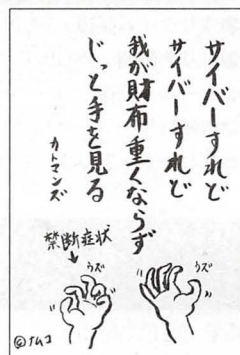 サイバーすれど
サイバーすれど
我が財布重くならず
じっと手を見る
カトマンズ
禁断症状
ウズ
ウズ
©ナムコ